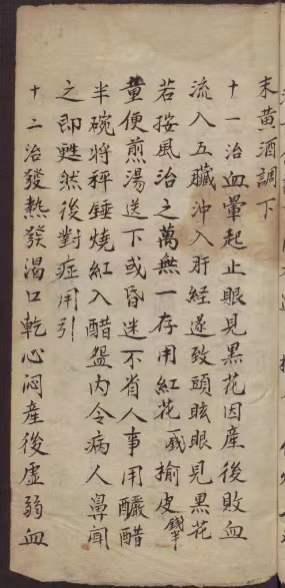 末黄酒調下
十一治血暈起止眼見黒花因產後敗血
流入五臟沖入肝經遂致頭眩眼見黒花
若按風治之萬無一存用紅花一錢榆皮錢半
童便煎湯送下或昏迷不省人事用釅醋
半碗將秤錘燒紅入醋盌內令病人鼻闻
之即甦然後對症用引
十二治發熱發渴口乾心闷產後虛弱血